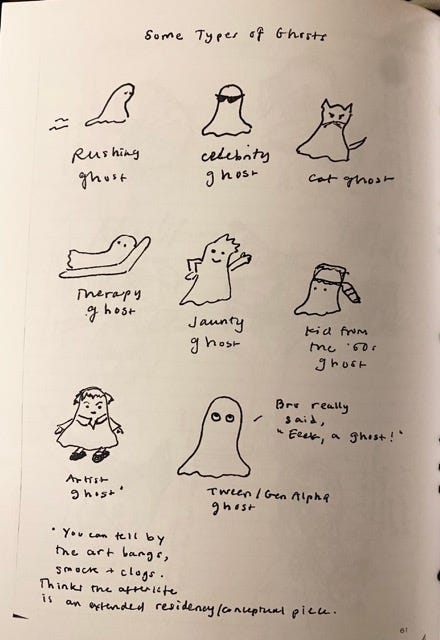 Some Types of Ghosts
Rushing
ghost
celebrity
ghost
Cat ghost
Therapy
ghost
Jaunty
ghost
Kid from
the '60s
ghost
Artist
ghost*
Tween/Gen Alpha
ghost
Bru really
said,
"Eeek, a ghost!"
* You can tell by
the art bangs,
smock + clogs.
Thinks the afterlife
is an extended residency/conceptual piece.
61